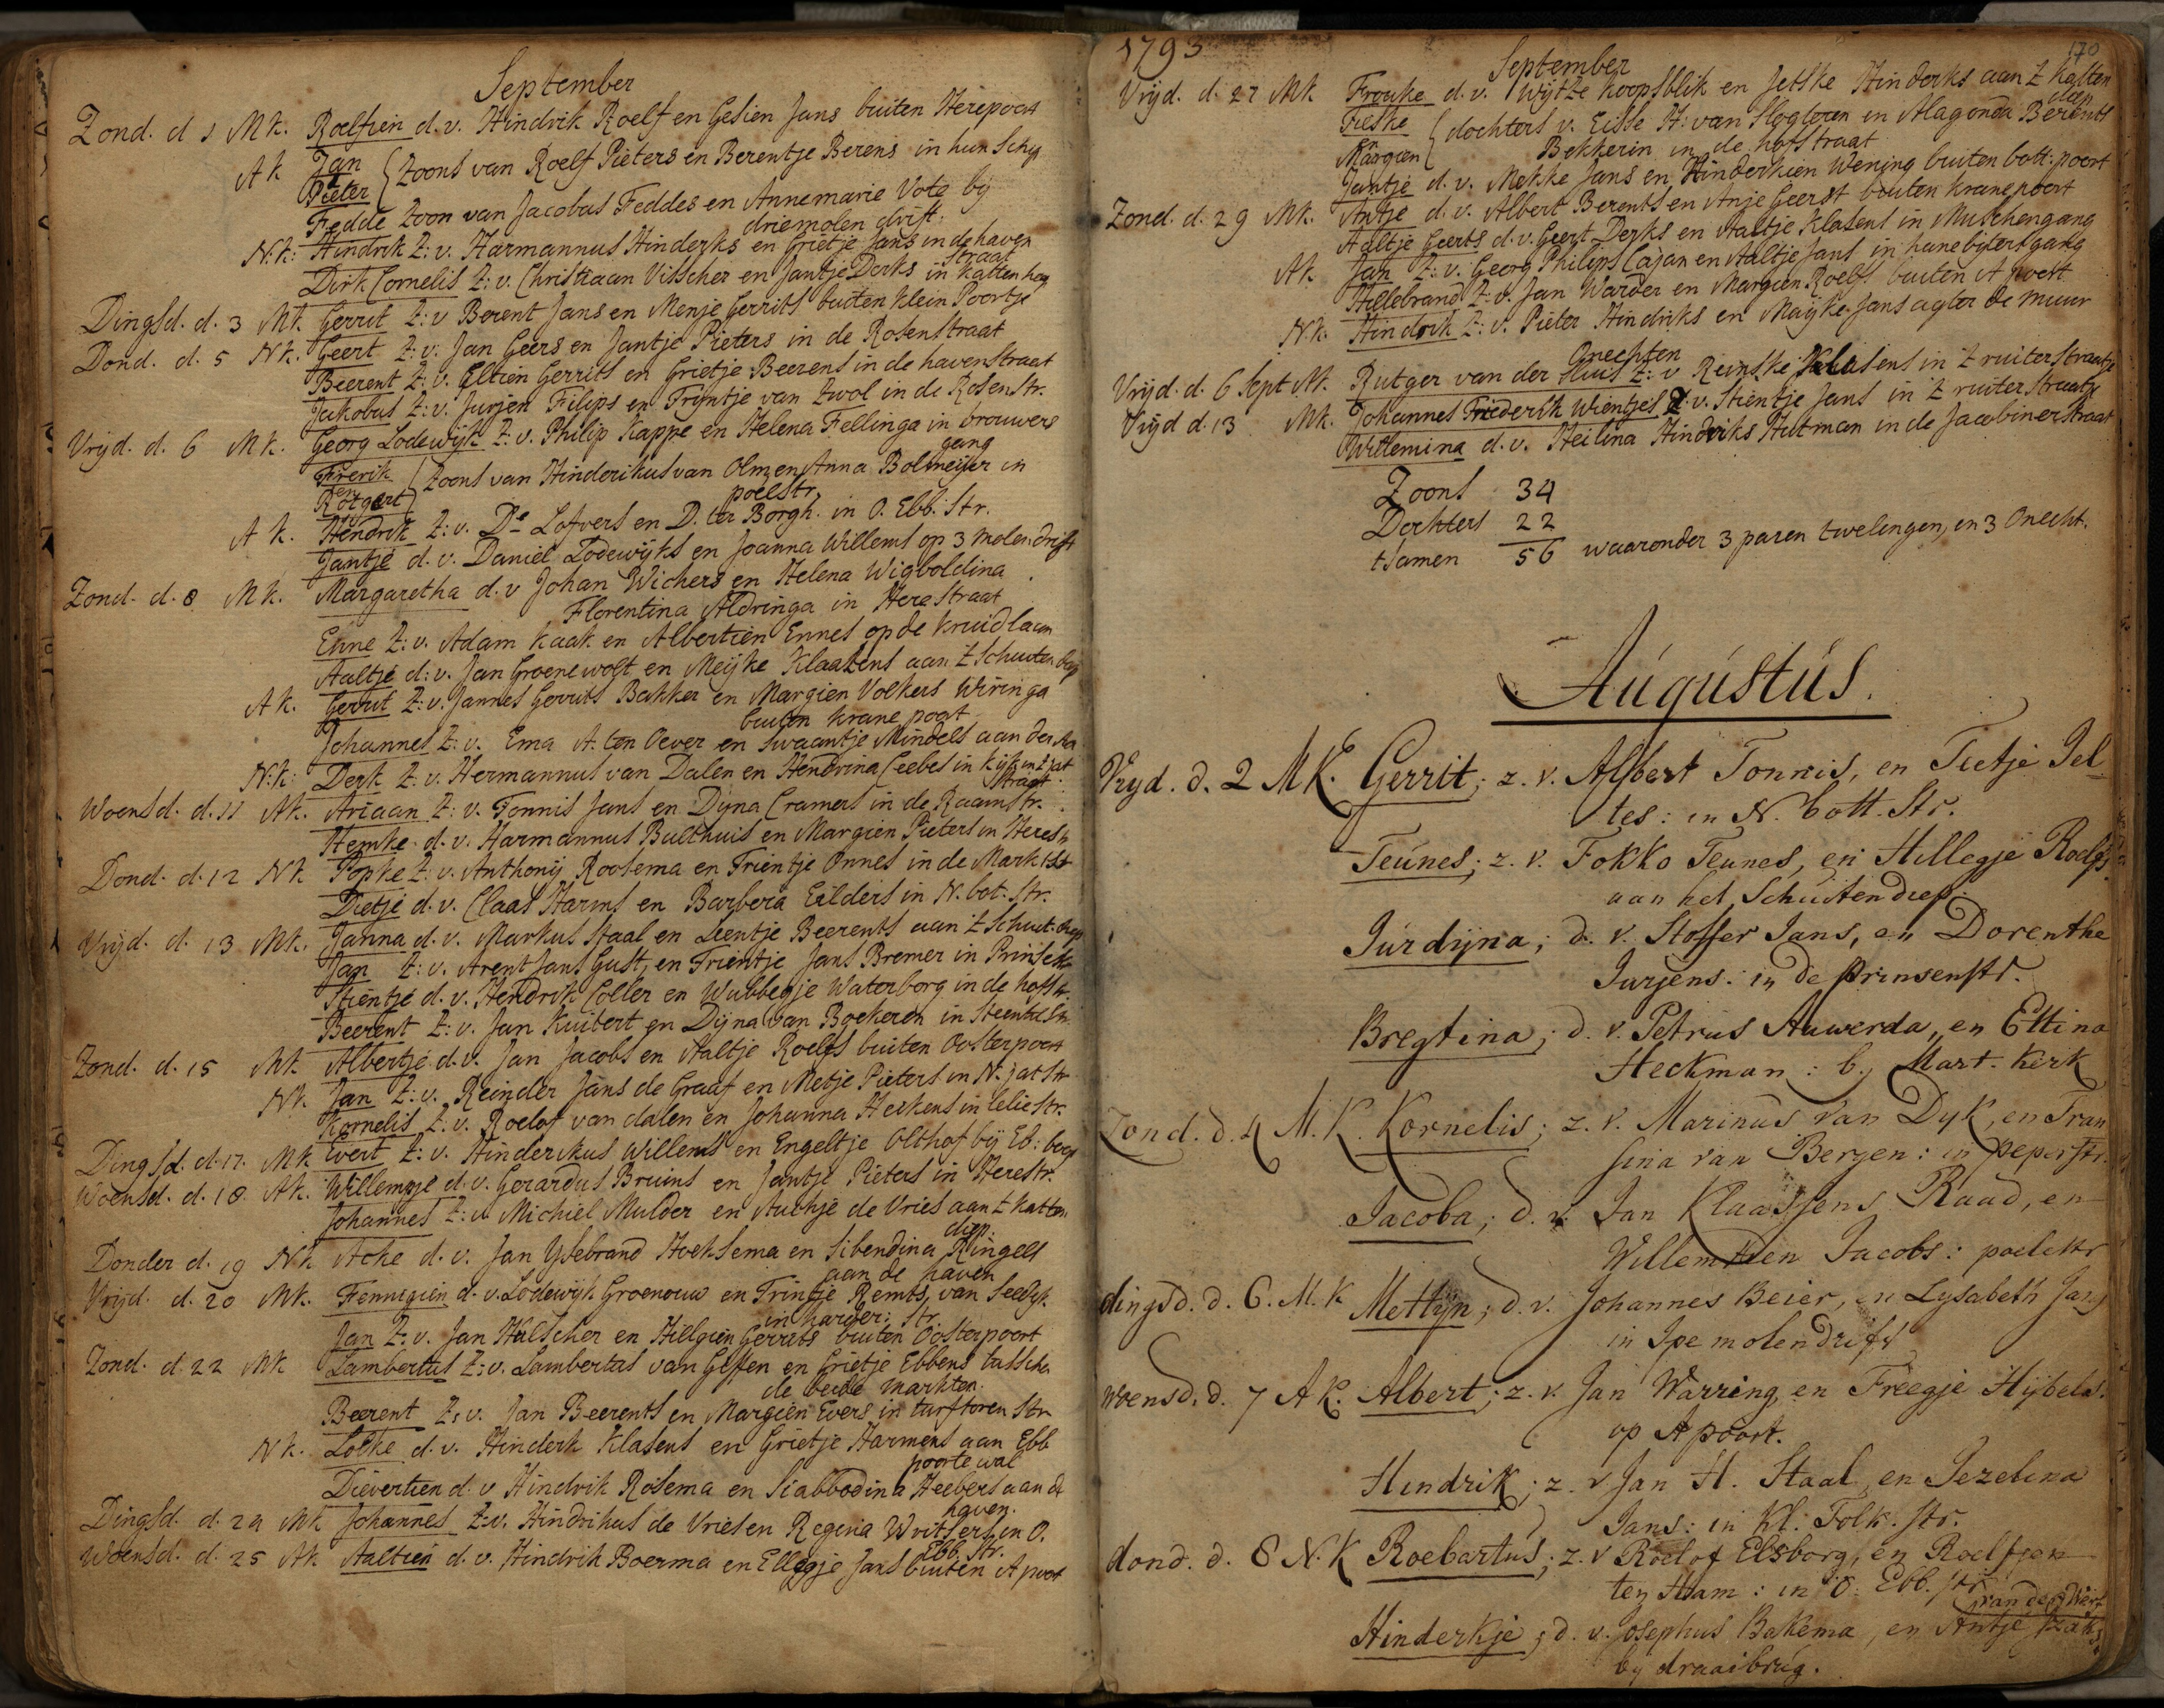 September
Zond. d 1 Mk. Roelfien d. v. Hindrik Roelf en Gesien Jans buiten Herepoort
Ak Jan
Pieter { Zoons van Roelf Pieters en Berentje Berens in hun Schip
Fedde Zoon van Jacobus Feddes en Annemarie Vote by
driemolen drift.
N.k: Hindrik Z: v. Harmannus Hinderks en Grietje Jans in de haven
straat
Dirk Cornelis Z: v. Christiaan Visscher en Jantje Derks in Katten hag
Dingsd. d. 3 Mk Gerrit Z: v Berent Jans en Menje Gerrits buiten Klein Poortje
Dond. d. 5 Nk. Geert Z: v. Jan Geers en Jantje Pieters in de Rosenstraat
Beerent Z: v. Eltien Gerrits en Grietje Beerens in de havenstraat
Jakobus Z: v. Jurjen Filips en Trijntje van Zwol in de Rosenstr.
Vrijd. d. 6 Mk. Georg Lodewijk Z: v. Philip Kappe en Helena Fellinga in brouwers
gang
Frerik
en
Rotgert { Zoons van Hinderikus van Olm en Anna Bolmeijer in
poelstr.
A k. Hendrik Z: v. Ds Lofvers en D. ter Borgh. in O. Ebb. Str.
Jantje d. v. Daniel Lodewijks en Joanna Willems op 3 molendrift
Zond. d. 8 Mk. Margaretha d. v Johan Wichers en Helena Wigboldina
Florentina Aldringa in Herestraat
Enne Z: v. Adam Kaak en Albertien Ennes op de kruidlaan
Aaltje d: v. Jan Groenewolt en Meijke Klaasens aan 't Schuiten diep
A k. Gerrit Z: v. Jannes Gerrits Bakker en Margien Volkers Wiringa
buiten Krane poort
Johannes Z: v. Ema A. ten Oever en Swaantje Mindels aan der Aa
N.k: Derk Z: v. Hermannus van Dalen en Hendrina Ceebes in kijk in 't jat
straat
Woensd. d. 11 Ak. Ariaan Z: v. Tonnis Jans en Dijna Cramers in de Raamstr.
Hemke d. v. Harmannus Bulthuis en Margien Pieters in Herestr
Dond. d. 12 Nk Popke Z: v. Anthonij Roosema en Trientje Onnes in de Markt str
Dietje d. v. Claas Harms en Barbera Eilders in N. bot. Str.
Vrijd. d. 13 Mk. Janna d. v. Markus Staal en Leentje Beerents aan 't Schuit diep
Jan Z: v. Arent Jans Gust, en Trientje Jans Bremer in Prinsestr
Stientje d. v. Hendrik Coller en Wubbegje Waterborg in de hofstr.
Beerent Z: v. Jan Kuitert en Dijna van Boekeren in Steentilstr.
Zond. d. 15 Mk Albertje d. v. Jan Jacobs en Aaltje Roelfs buiten Oosterpoort
Nk. Jan Z: v. Reinder Jans de Graaf en Metje Pieters in N. jatstr
Kornelis Z: v. Roelof van dalen en Johanna Herkens in leliestr.
Dingsd. d. 17. Mk Evert Z: v. Hinderikus Willems en Engeltje Olthof bij Eb: boog
Woensd. d. 18. Ak. Willempje d. v. Gerardus Bruins en Jantje Pieters in Herestr.
Johannes Z: v. Michiel Mulder en Auckje de Vries aan 't katten
diep.
Donder d. 19 Nk Acke d. v. Jan Ysebrand Hoeksema en Sibendina Ringels
aan de haven
Vrijd. d. 20 Mk. Fennigien d. v. Lodewijk Groenouw en Trintje Remts van Seedijk
in harder: Str.
Jan Z: v. Jan Hulscher en Hillgien Gerrits buiten Oosterpoort
Zond. d. 22 Mk Lambertus Z: v. Lambertus van Geffen en Grietje Ebbens tusschen
de beide markten.
Beerent Z: v. Jan Beerents en Margien Evers in turftoren Str
Nk. Locke d. v. Hinderk Klasens en Grietje Harmens aan Ebb
poorte wal
Dievertien d. v Hindrik Rosema en Siabbodina Heebers aan de
haven.
Dingsd. d. 24 Mk Johannes Z: v. Hindrikus de Vries en Regina Writsers in O.
Ebb. Str.
Woensd. d. 25 Ak Aaltien d. v. Hindrik Boerma en Ellegje Jans buiten A poort
1793
170
September
Vrijd. d. 27 Mk Frouke d. v. Wijtze Koopsblik en Jetske Hinderks aan 't Katten
diep
Fieske
Margien { dochters v. Eisse H: van Slogteren en Alagonda Berents
Bekkerin in de hofstraat
Jantje d. v. Mekke Jans en Hinderkien Wening buiten bott: poort
Zond. d. 29 Mk. Antje d. v. Albert Berents en Anje Geerst buiten kranepoort
Aaltje Geerts d. v. Geert Derks en Aaltje Klasens in Muschengang
Ak Jan Z: v. Georg Philips Cajan en Aaltje Jans in hanebijters gang
Hillebrand Z: v. Jan Warder en Margien Roelfs buiten A poort
N.k. Hindrik Z: v. Pieter Hindriks en Maijke Jans agter de muur
Onechten
Vrijd. d. 6 Sept Mk. Rutger van der Sluis Z: v Reinske Klasens in 't ruiterstraatje
Vrijd d. 13 Mk. Johannes Friederik Wientjes Z: v. Stientje Jans in 't ruiter straatje
Willemina d. v. Heilina Hindriks Hutman in de Jacobinerstraat
Zoons 34
Dochters 22
tsamen 56 waaronder 3 paren twelingen, en 3 Onecht.
Augustus.
Vryd. d. 2 MK. Gerrit; z. v. Albert Tonnis, en Tietje Jel-
tes: in N. bott. Str.
Teunes; z. v. Fokko Teunes, en Hillegje Roelfs.
aan het Schuitendiep.
Jurdijna; d. v. Stoffer Jans, en Dorenthe
Jurjens: in de Prinsenstr.
Bregtina; d. v. Petrus Auwerda, en Ettina
Heckman: by Mart. Kerk
Zond. d. 4 M. K. Kornelis; z. v. Marinus van Dyk, en Fran
sina van Bergen: in peperstr.
Jacoba; d. v. Jan Klaassens Raad, en
Willemtien Jacobs: poelestr
dingsd. d. 6. M. K Mettijn; d. v. Johannes Beier, en Lysabeth Jans
in Ipe molendrift
Woensd. d. 7 A K. Albert; z. v. Jan Warring, en Freegje Hijbels.
op A poort.
Hindrik; z. v Jan H. Staal, en Jezelina
Jans: in Kl. Folk. str.
dond. d. 8 N. K Roebartus; z. v Roelof Elsborg, en Roelfjen
ten Ham: in O. Ebb. str.
van der Werf
Hinderkje; d. v. Josephus Bakema, en Antje Izaks
by draaibrug.